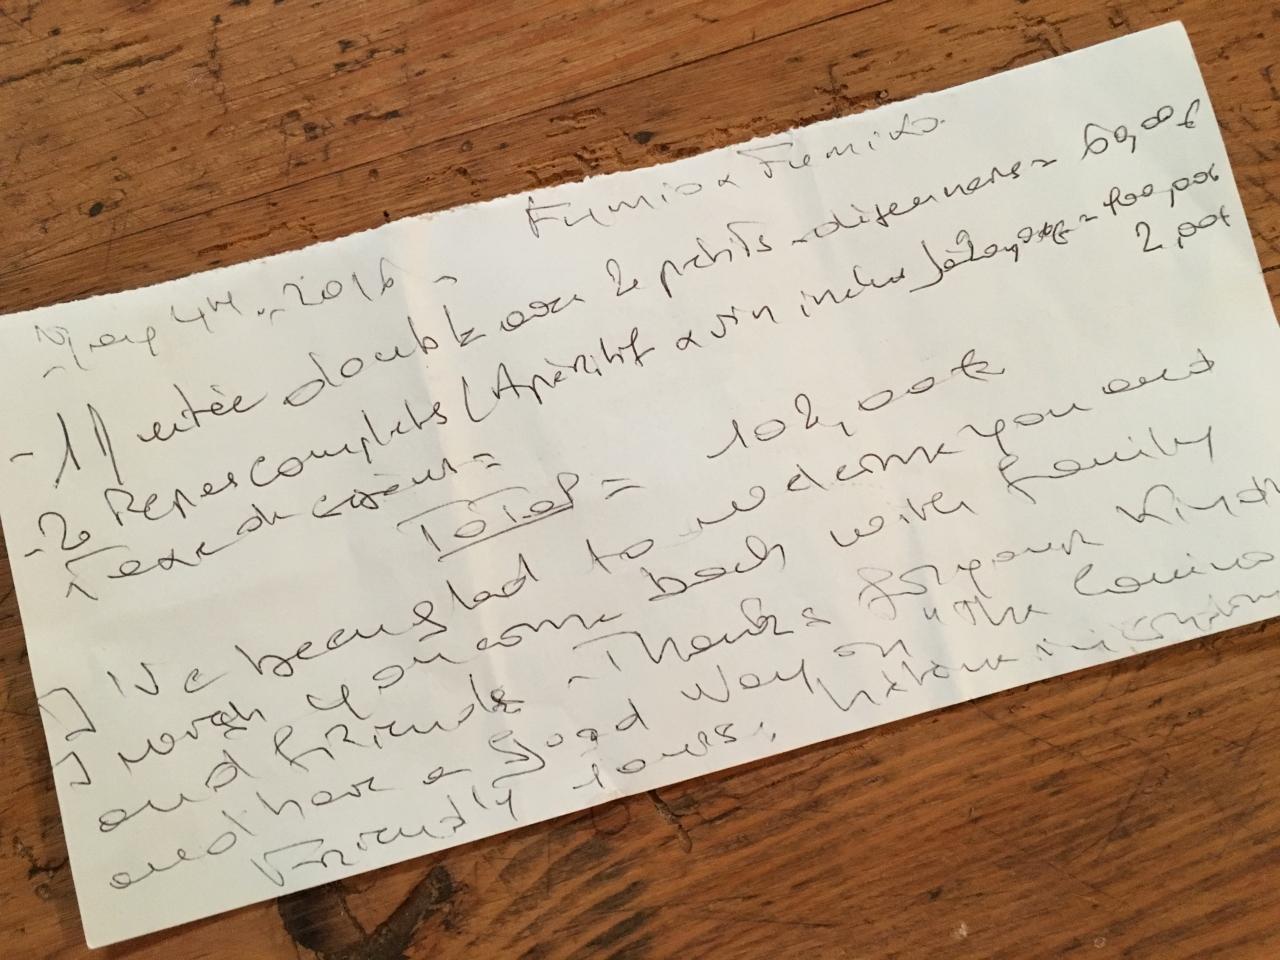 Fumio & Fumiko.
May 4th. 2016 -
- 1 Nuitée double avec 2 petits-déjeuners = 60,00€
- 2 Repas complets (Apéritif & vin inclus) à 20,00€ = 400,00€
Taxe de séjour = 2,00€
Total = 102,00€
I've been glad to welcome you and
I wish you come back with family
and friends - Thanks for your kindn
and have a good way on "the Camino
Friendly yours;